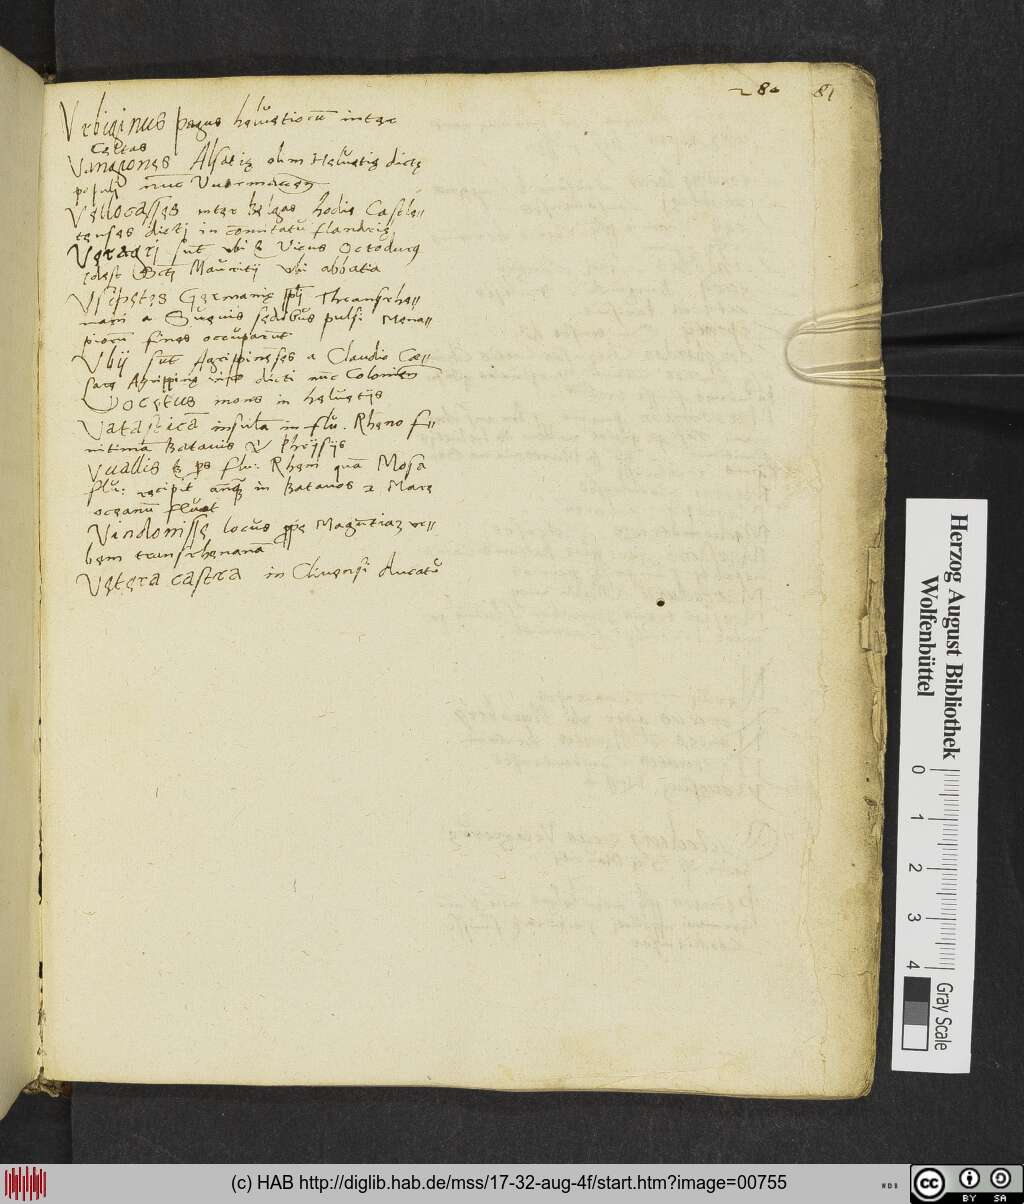 280 81
Vrbiginus pagus helvetiorū inter
Celtas
Vangiones Alsatię olim Helvetię dictę
populj nūc
Vellocasses inter Belgas hodie Casle-
tenses dictj in comitatu flandrię
Veragrj sūt vbi ē Vicus Octodurg
idest Sctj Mauritij vbi abbatia
Vsipetes Germanię ppłj Thransrhe-
nani a Sueuis sedibus pulsj Mena-
piorū fines occuparūt
Vbij sūt Agrippinēses a Claudio Cæ-
sare Agrippinę dicti nūc Coloniēn
Vocetus mons in helvetijs
Vatasticā insulā in flu. Rheno fi-
nitimā Batauis & Phrijsijs
Vuallis ē ps flu: Rhenj quā Mosa
flu: recipit in Batauos & Mare
oceanū fluat
Vindonissę locus ppe Magūtiaz vr-
bem transrhenanā
Vetera castra in Cliuensi ducatū
Herzog August Bibliothek
Wolfenbüttel
0 1 2 3 4
Gray Scale
(c) HAB http://diglib.hab.de/mss/17-32-aug-4f/start.htm?image=00755
WDB
cc BY SA